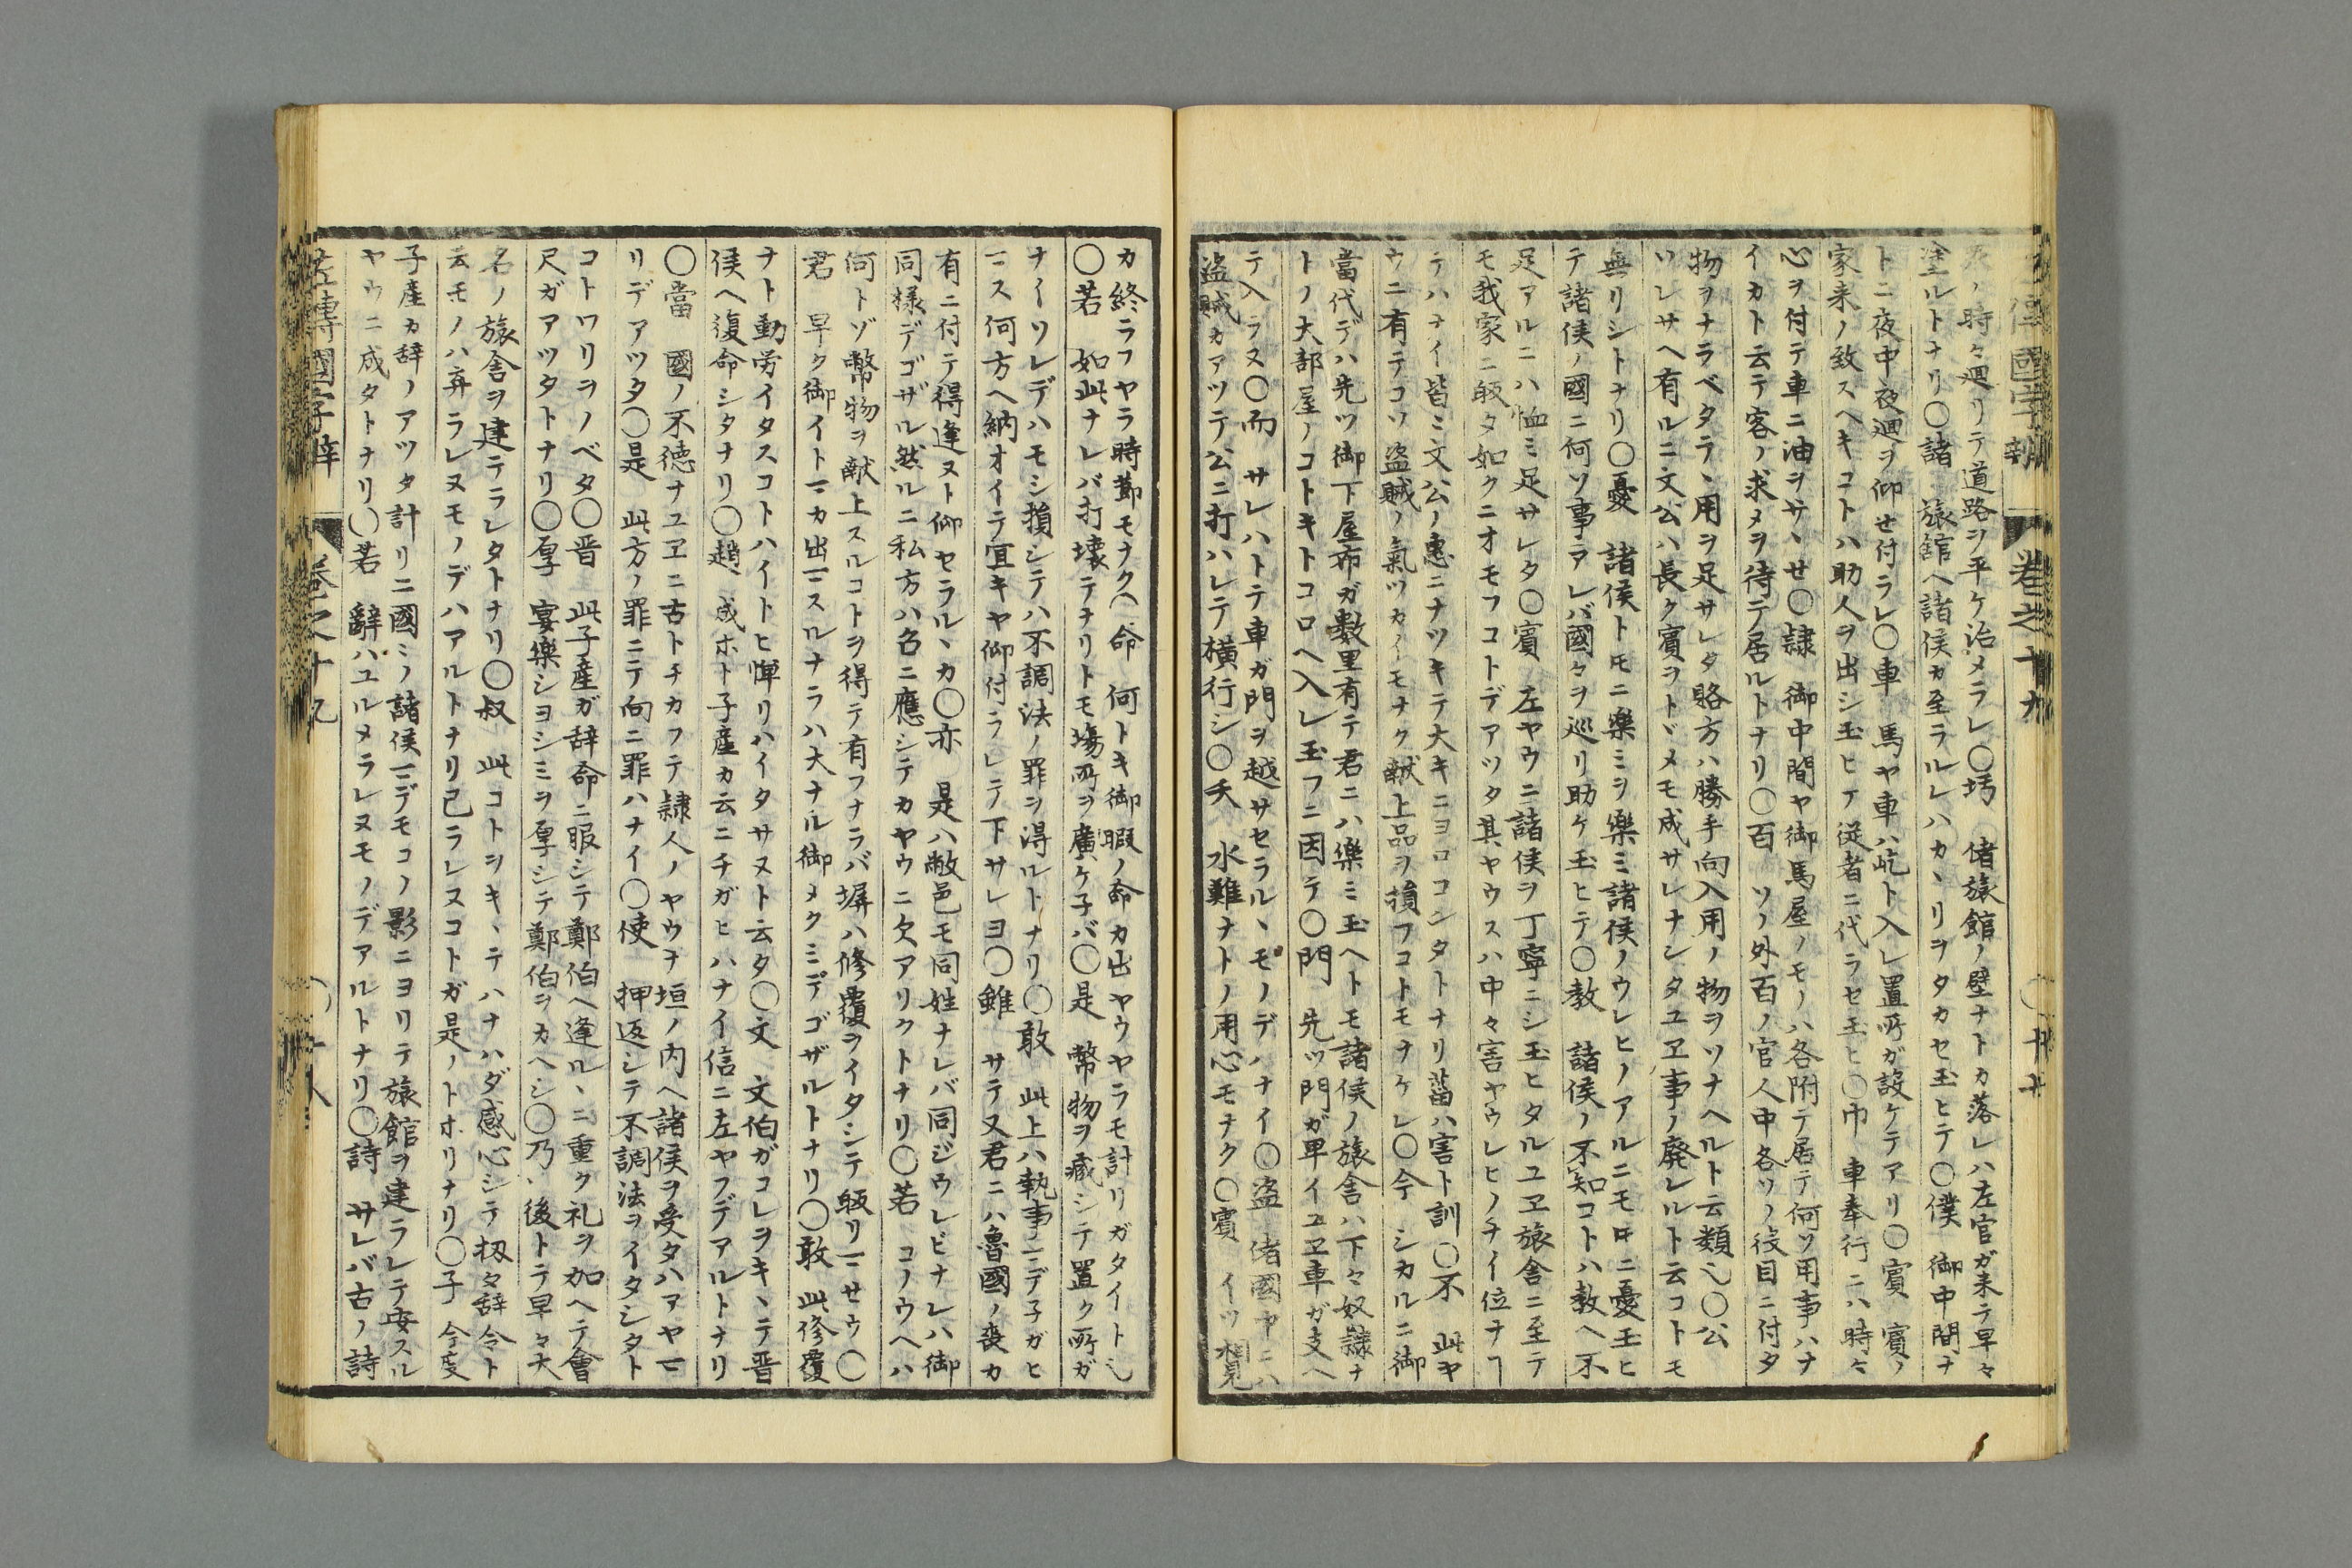 時々廻リテ道路ヲ平ケ治メラレ〇圬　偖旅館ノ壁ナトカ落レハ左官ガ来テ早々
塗ルトナリ〇諸　旅館ヘ諸侯カ至ラルレハカヽリヲタカセ玉ヒテ〇僕　御中間ナ
トニ夜中夜廻ヲ仰せ付ラレ〇車　馬ヤ車ハ屹ト入レ置所ガ設ケテアリ〇賓　賓ノ
家来ノ致スヘキコトハ助人ヲ出シ玉ヒテ従者ニ代ラセ玉ヒ〇巾　車奉行ニハ時々
心ヲ付テ車ニ油ヲサヽせ〇隷　御中間ヤ御馬屋ノモノハ各附テ居テ何ソ用事ハナ
イカト云テ客ノ求メヲ待テ居ルトナリ〇百　ソノ外百ノ官人中各ソノ役目ニ付タ
物ヲナラベタテヽ用ヲ足サレタ賂方ハ勝手向入用ノ物ヲソナヘルト云類也〇公
ソレサヘ有ルニ文公ハ長ク賓ヲトヾメモ成サレナシタユヱ事ノ廃レルト云コトモ
無リシトナリ〇憂　諸侯トモニ楽ミヲ楽ミ諸侯ノウレヒノアルニモ𪜈ニ憂玉ヒ
テ諸侯ノ國ニ何ソ事アレバ國々ヲ巡リ助ケ玉ヒテ〇教　諸侯ノ不知コトハ教ヘ不
足アルニハ恤ミ足サレタ〇賓　左ヤウニ諸侯ヲ丁寧ニシ玉ヒタルユヱ旅舎ニ至テ
モ我家ニ皈タ如クニオモフコトデアツタ其ヤウスハ中々害ヤウレヒノナイ位ナヿ
テハナイ皆ミ文公ノ惠ニナツキテ大キニヨロコンタトナリ菑ハ害ト訓〇不　此ヤ
ウニ有テコソ盗賊ノ氣ツカイモナク献上品ヲ損フコトモナケレ〇今　シカルニ御
當代デハ先ツ御下屋布ガ数里有テ君ニハ楽ミ玉ヘトモ諸侯ノ旅舎ハ下々奴隷ナ
トノ大部屋ノコトキトコロヘ入レ玉フニ因テ〇門　先ツ門ガ卑イユヱ車ガ支ヘ
テ入ラヌ〇而　サレハトテ車ガ門ヲ越サセラルヽモノデハナイ〇盗　偖國中ニハ
盗賊カアツテ公ニ打ハレテ横行シ〇夭　水難ナトノ用心モナク〇賓　イツ相見
カ終ラフヤラ時莭モナク〽命　何トキ御暇ノ命カ出ヤウヤラモ計リガタイト也
〇若　如此ナレバ打壊テナリトモ場所ヲ廣ケ子バ〇是　幣物ヲ蔵シテ置ク所ガ
ナイソレデハモシ損シテハ不調法ノ罪ヲ得ルトナリ〇敢　此上ハ執事マデ子ガヒ
マス何方ヘ納オイテ宜キヤ仰付ラレテ下サレヨ〇雖　サテ又君ニハ魯國ノ喪カ
有ニ付テ得逢ヌト仰セラルヽカ〇亦　是ハ敝邑モ同姓ナレバ同ジウレビナレハ御
同様デゴザル然ルニ私方ハ名ニ應シテカヤウニ欠アリクトナリ〇若　コノウヘハ
何トゾ幣物ヲ献上スルコトヲ得テ有フナラバ塀ハ修覆ヲイタシテ皈リマせウ〇
君　早ク御イトマカ出マスルナラハ大ナル御メクミデゴザルトナリ〇敢　此修覆
ナト動労イタスコトハイトヒ憚リハイタサヌト云タ〇文　文伯ガコレヲキヽテ晋
侯ヘ復命シタナリ〇趙　成ホト子産カ云ニチガヒハナイ信ニ左ヤフデアルトナリ
〇當　國ノ不徳ナユヱニ古トチカフテ隷人ノヤウナ垣ノ内ヘ諸侯ヲ受タハアヤマ
リデアツタ〇是　此方ノ罪ニテ向ニ罪ハナイ〇使　押返シテ不調法ヲイタシタト
コトワリヲノベタ〇晋　此子産ガ辞命ニ服シテ鄭伯ヘ逢ルヽニ重ク礼ヲ加ヘテ會
尺ガアツタトナリ〇厚　宴樂シヨシミヲ厚シテ鄭伯ヲカヘシ〇乃　後トテ早々大
名ノ旅舎ヲ建テラレタトナリ〇叔　此コトヲキヽテハナハダ感心シテ扨々辞令ト
云モノハ弃ラレヌモノデハアルトナリ已ラレヌコトガ是ノトホリナリ〇子　今度
子産カ辞ノアツタ計リニ國ミノ諸侯マデモコノ影ニヨリテ旅館ヲ建ラレテ安スル
ヤウニ成タトナリ〇若　辭ハユルメラレヌモノデアルトナリ〇詩　サレバ古ノ詩
左傳國字辯　巻之十九